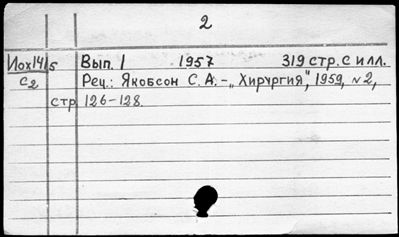 2
Иох1415 Вып. 1 1957 319 стр. с илл.
с2 Рец.: Якобсон С. А. – „Хирургия", 1959, №2,
стр 126–128.